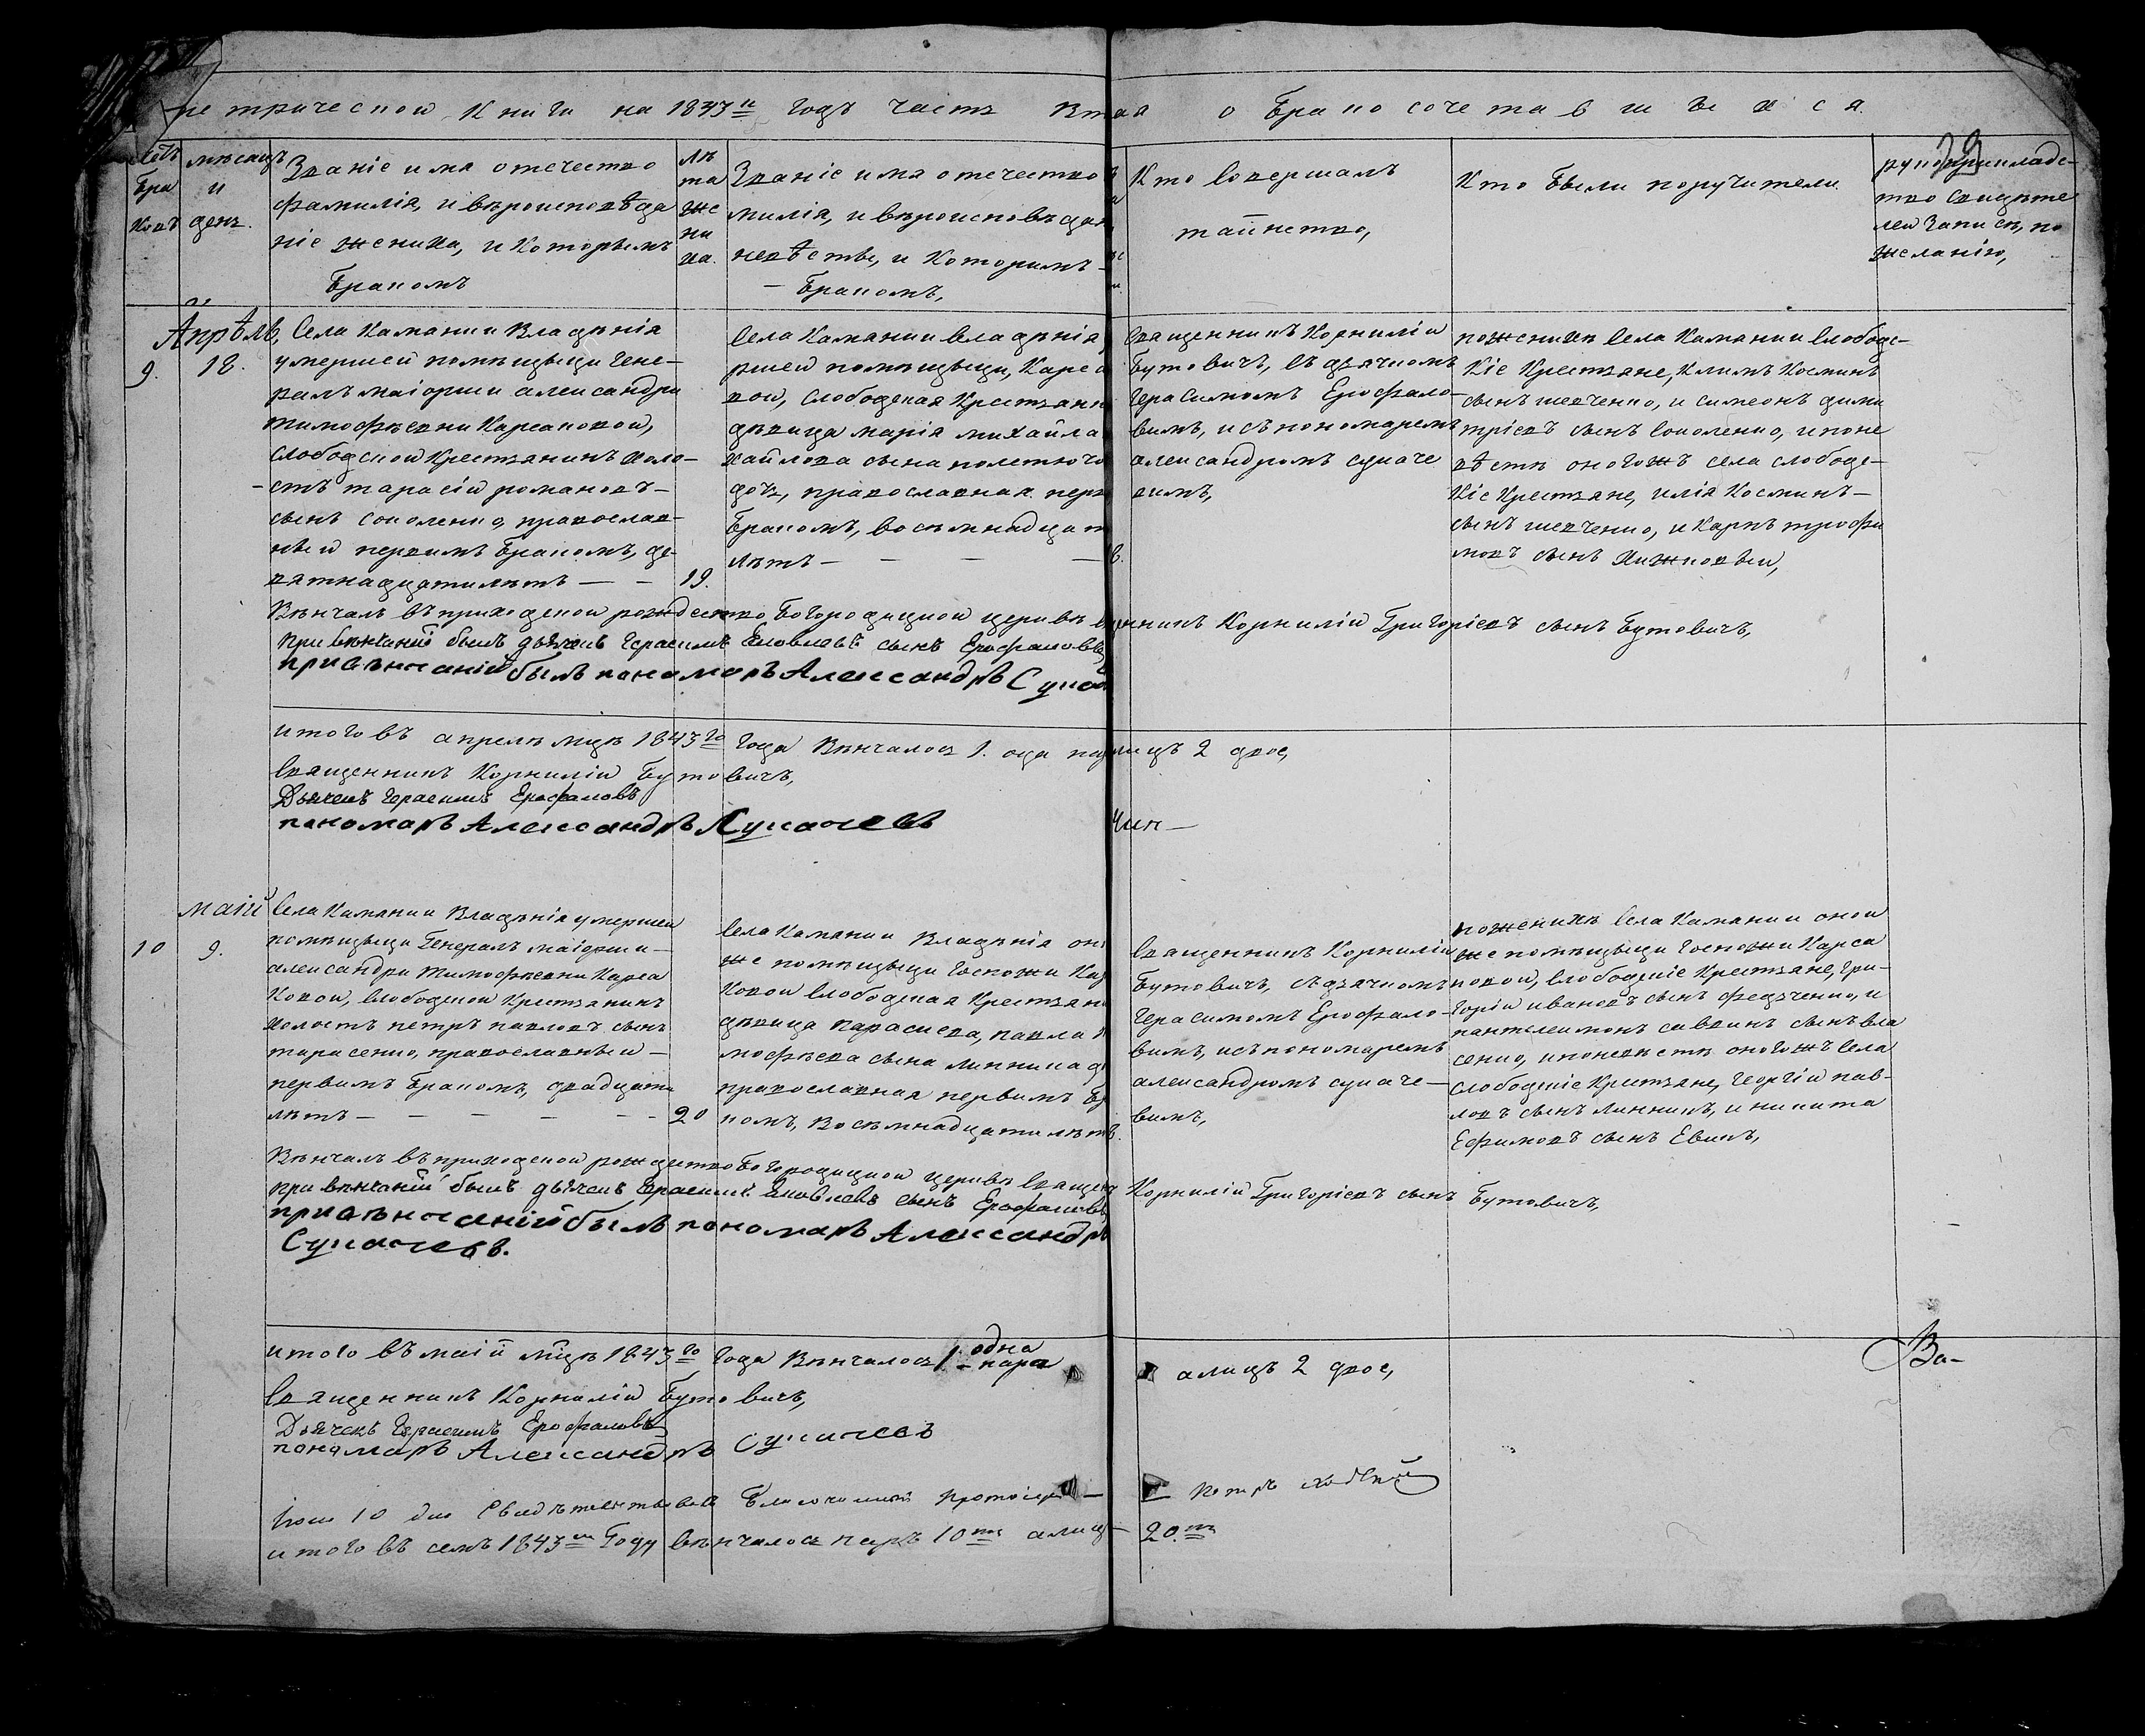 метрической книги на 1843й годъ часть втая о бракосочетавшихся.
Счетъ браковъ
мѣсяцъ и день.
Званіе имя отечество
фамилія, и вѣроисповѣда
ніе жениха, и которымъ
бракомъ
лѣ
та
же
ни
ха.
Званіе имя отечество
милія, и вѣроисповѣдан
невѣсты, и которимъ
бракомъ,
Кто совершалъ
таинство,
Кто были поручители
рукоприкладс-
тво свидѣте
лей записи, по
желанію,
Апрѣль,
9. 18.
Села Камании владѣнія
умершей помѣщыци гене-
ралъ маіорши александри
тимофѣевни Карсаковой,
слободской крестянинъ холо-
стъ тарасій романовъ
сынъ соколенко, православ-
ный первимъ бракомъ, де-
вятнадцати лѣтъ — — 19.
Села Камании владѣнія
ршей помѣщыци, Карса
вой, слободская крестянк
дѣвица марія михайла
хайлова сына полетючо
дочь, православная перв
бракомъ, восѣмнадцат
лѣтъ — — — 8.
Священникъ Корнилій
Бутовичъ, съ дячкомъ
Герасимомъ Ерофало-
вимъ, и съ пономаремъ
александромъ сукаче
вимъ,
по женихѣ села Камании слободс-
кіе крестяне, климъ Косминъ
сынъ шевченко, и симеонъ дими
тріевъ сынъ соколенко, и по не
вѣстѣ оногожъ села слободс-
кіе крестяне, илія Косминъ
сынъ шевченко, и карпъ трофи
мовъ сынъ хижковый,
Вѣнчалъ въ приходской рождество Богородицкой церквѣ енникъ Корнилій Григоріевъ сынъ Бутовичъ,
При вѣнчаніи былъ дьячекъ Герасимъ Яковлевъ сынъ Ерофаловъ
при вѣнчаніи былъ пономарь Александръ Сукач
итого въ апрелѣ мцѣ 1843го года вѣнчалось 1. одна па лицъ 2 двое,
Священникъ Корнилій Бутовичъ,
Дьячекъ Герасимъ Ерофаловъ
пономарь Александръ Сукачевъ
Чин—
маій
10 9.
Села Камании владѣнія умершей
помѣщыци генералъ маіорши
александри тимофѣевни Карса
ковой, слободской крестянинъ
холостъ петръ павловъ сынъ
тарасенко, православный
первимъ бракомъ, двадцати
лѣтъ — — — — 20
Села Камании владѣнія он
же помѣщыци госпожи Кар
ковой слободская крестянк
дѣвица параскева, павла
мофѣева сына линника д
православная первимъ бр
комъ, восѣмнадцати лѣтъ
Священникъ Корнилій
Бутовичъ, съ дячкомъ
Герасимомъ Ерофало-
вимъ, и съ пономаремъ
александромъ сукаче-
вимъ,
по женихѣ села Камании оной
же помѣщыци госпожи Карса
ковой, слободскіе крестяне, гри-
горій ивановъ сынъ федченко, и
пантелеимонъ саввинъ сынъ вла
сенко, и по невѣстѣ оногожъ села
слободскіе крестяне, георгій пав-
ловъ сынъ линникъ, и никита
Ефимовъ сынъ Евикъ,
Вѣнчалъ въ приходской рождество Богородицкой церквѣ священ Корнилій Григоріевъ сынъ Бутовичъ,
при вѣнчаніи былъ дьячекъ Герасимъ Яковлевъ сынъ Ерофаловъ
при вѣнчаніи былъ пономарь Александръ
Сукачевъ.
итого въ маіи мцѣ 1843го года вѣнчалось 1. одна пара а лицъ 2 двое,
Ва-
Священникъ Корнилій Бутовичъ,
Дьячекъ Герасимъ Ерофаловъ
пономарь Александръ Сукачевъ
10 дня свидѣтельствовалъ Благочинный Протоіерей — Петръ
итого въ семъ 1843м году вѣнчалось паръ 10ть а лиц— 20.ть